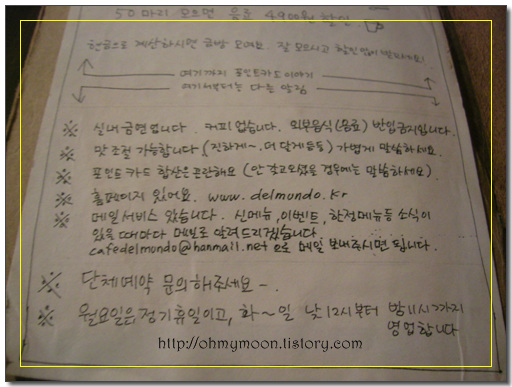 50마리 모으면 음료 4900원 할인.
현금으로 계산하시면 금방 모여요. 잘 모으시고 할인
여기까지 포인트카드 이야기
여기서부터는 다른 알림
※ 실내금연입니다. 커피 없습니다. 외부음식(음료) 반입금지입니다.
※ 맛조절 가능합니다. (진하게~. 더 달게 등등) 가볍게 말씀하세요.
※ 포인트카드 합산은 곤란해요 (안 갖고오셨을 경우에는 말씀하세요)
※ 홈페이지 있어요. www.delmundo.kr
※ 메일서비스 있습니다. 신메뉴, 이벤트, 한정메뉴등 소식이
있을 때마다 메일로 알려드리겠습니다.
cafedelmundo@hanmail.net 으로 메일 보내주시면 됩니다.
※ 단체예약 문의해주세요~.
※ 월요일은 정기휴일이고, 화~일 낮 12시부터 밤 11시까지
영업합니다
http://ohmymoon.tistory.com